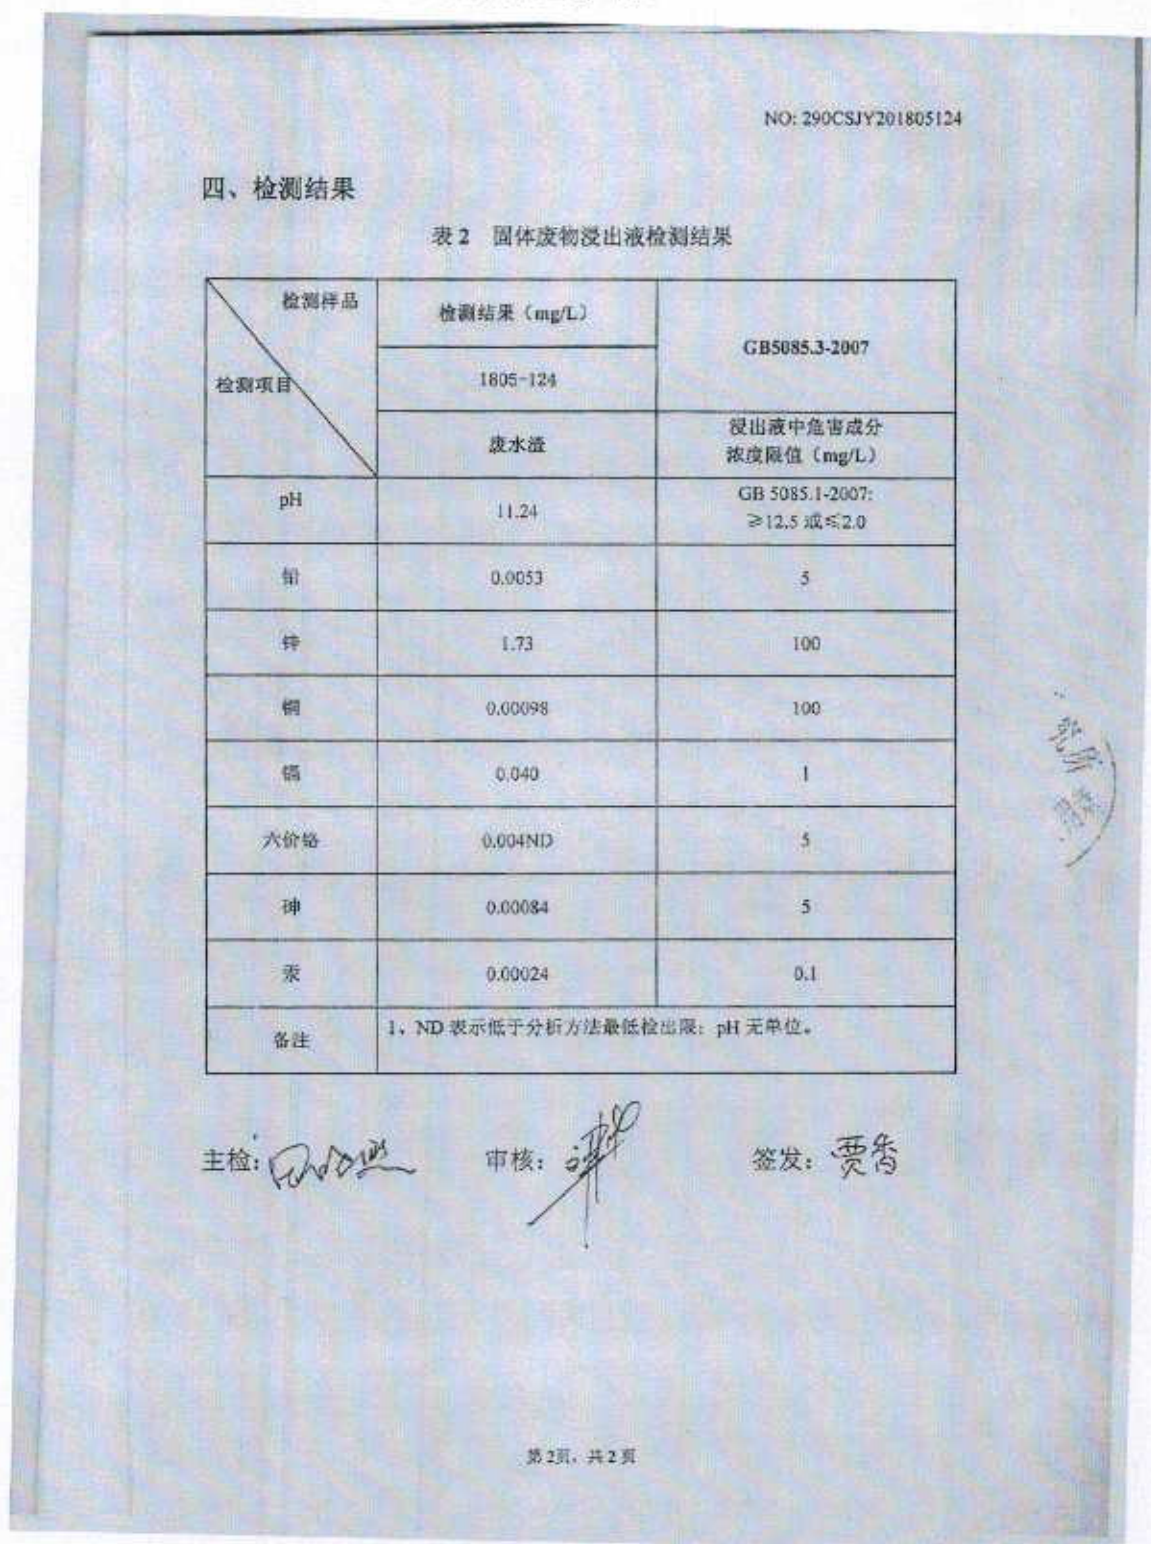 NO: 290CSJY201805124
四、检测结果
表 2 固体废物浸出液检测结果
检测样品
检测项目
检测结果（mg/L）
GB5085.3-2007
1805-124
废水渣
浸出液中危害成分
浓度限值（mg/L）
pH
11.24
GB 5085.1-2007:
≥12.5 或≤2.0
铅
0.0053
5
锌
1.73
100
铜
0.00098
100
镉
0.040
1
六价铬
0.004ND
5
砷
0.00084
5
汞
0.00024
0.1
备注
1、ND 表示低于分析方法最低检出限；pH 无单位。
主检：
审核：
签发：贾香
第 2页，共 2 页